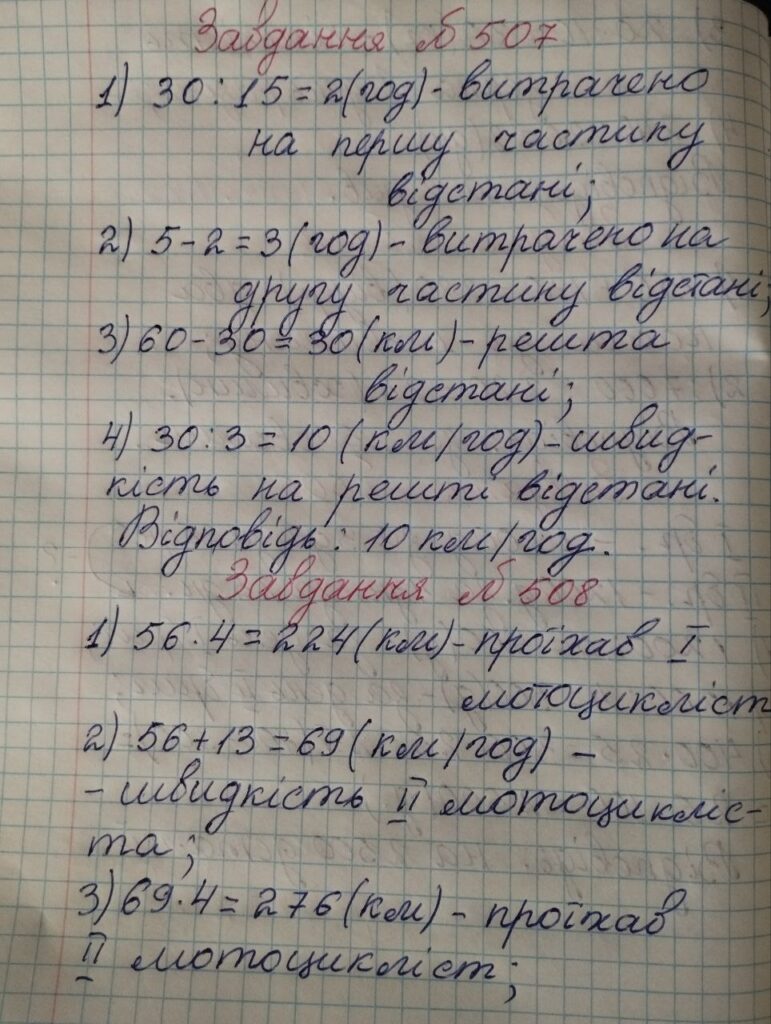 Завдання № 507
1) 30 : 15 = 2 (год) - витрачено
на першу частину
відстані;
2) 5 - 2 = 3 (год) - витрачено на
другу частину відстані;
3) 60 - 30 = 30 (км) - решта
відстані;
4) 30 : 3 = 10 (км/год) - швид-
кість на решті відстані.
Відповідь: 10 км/год.
Завдання № 508
1) 56 · 4 = 224 (км) - проїхав I
мотоцикліст
2) 56 + 13 = 69 (км/год) -
- швидкість II мотоцикліс-
та;
3) 69 · 4 = 276 (км) - проїхав
II мотоцикліст;